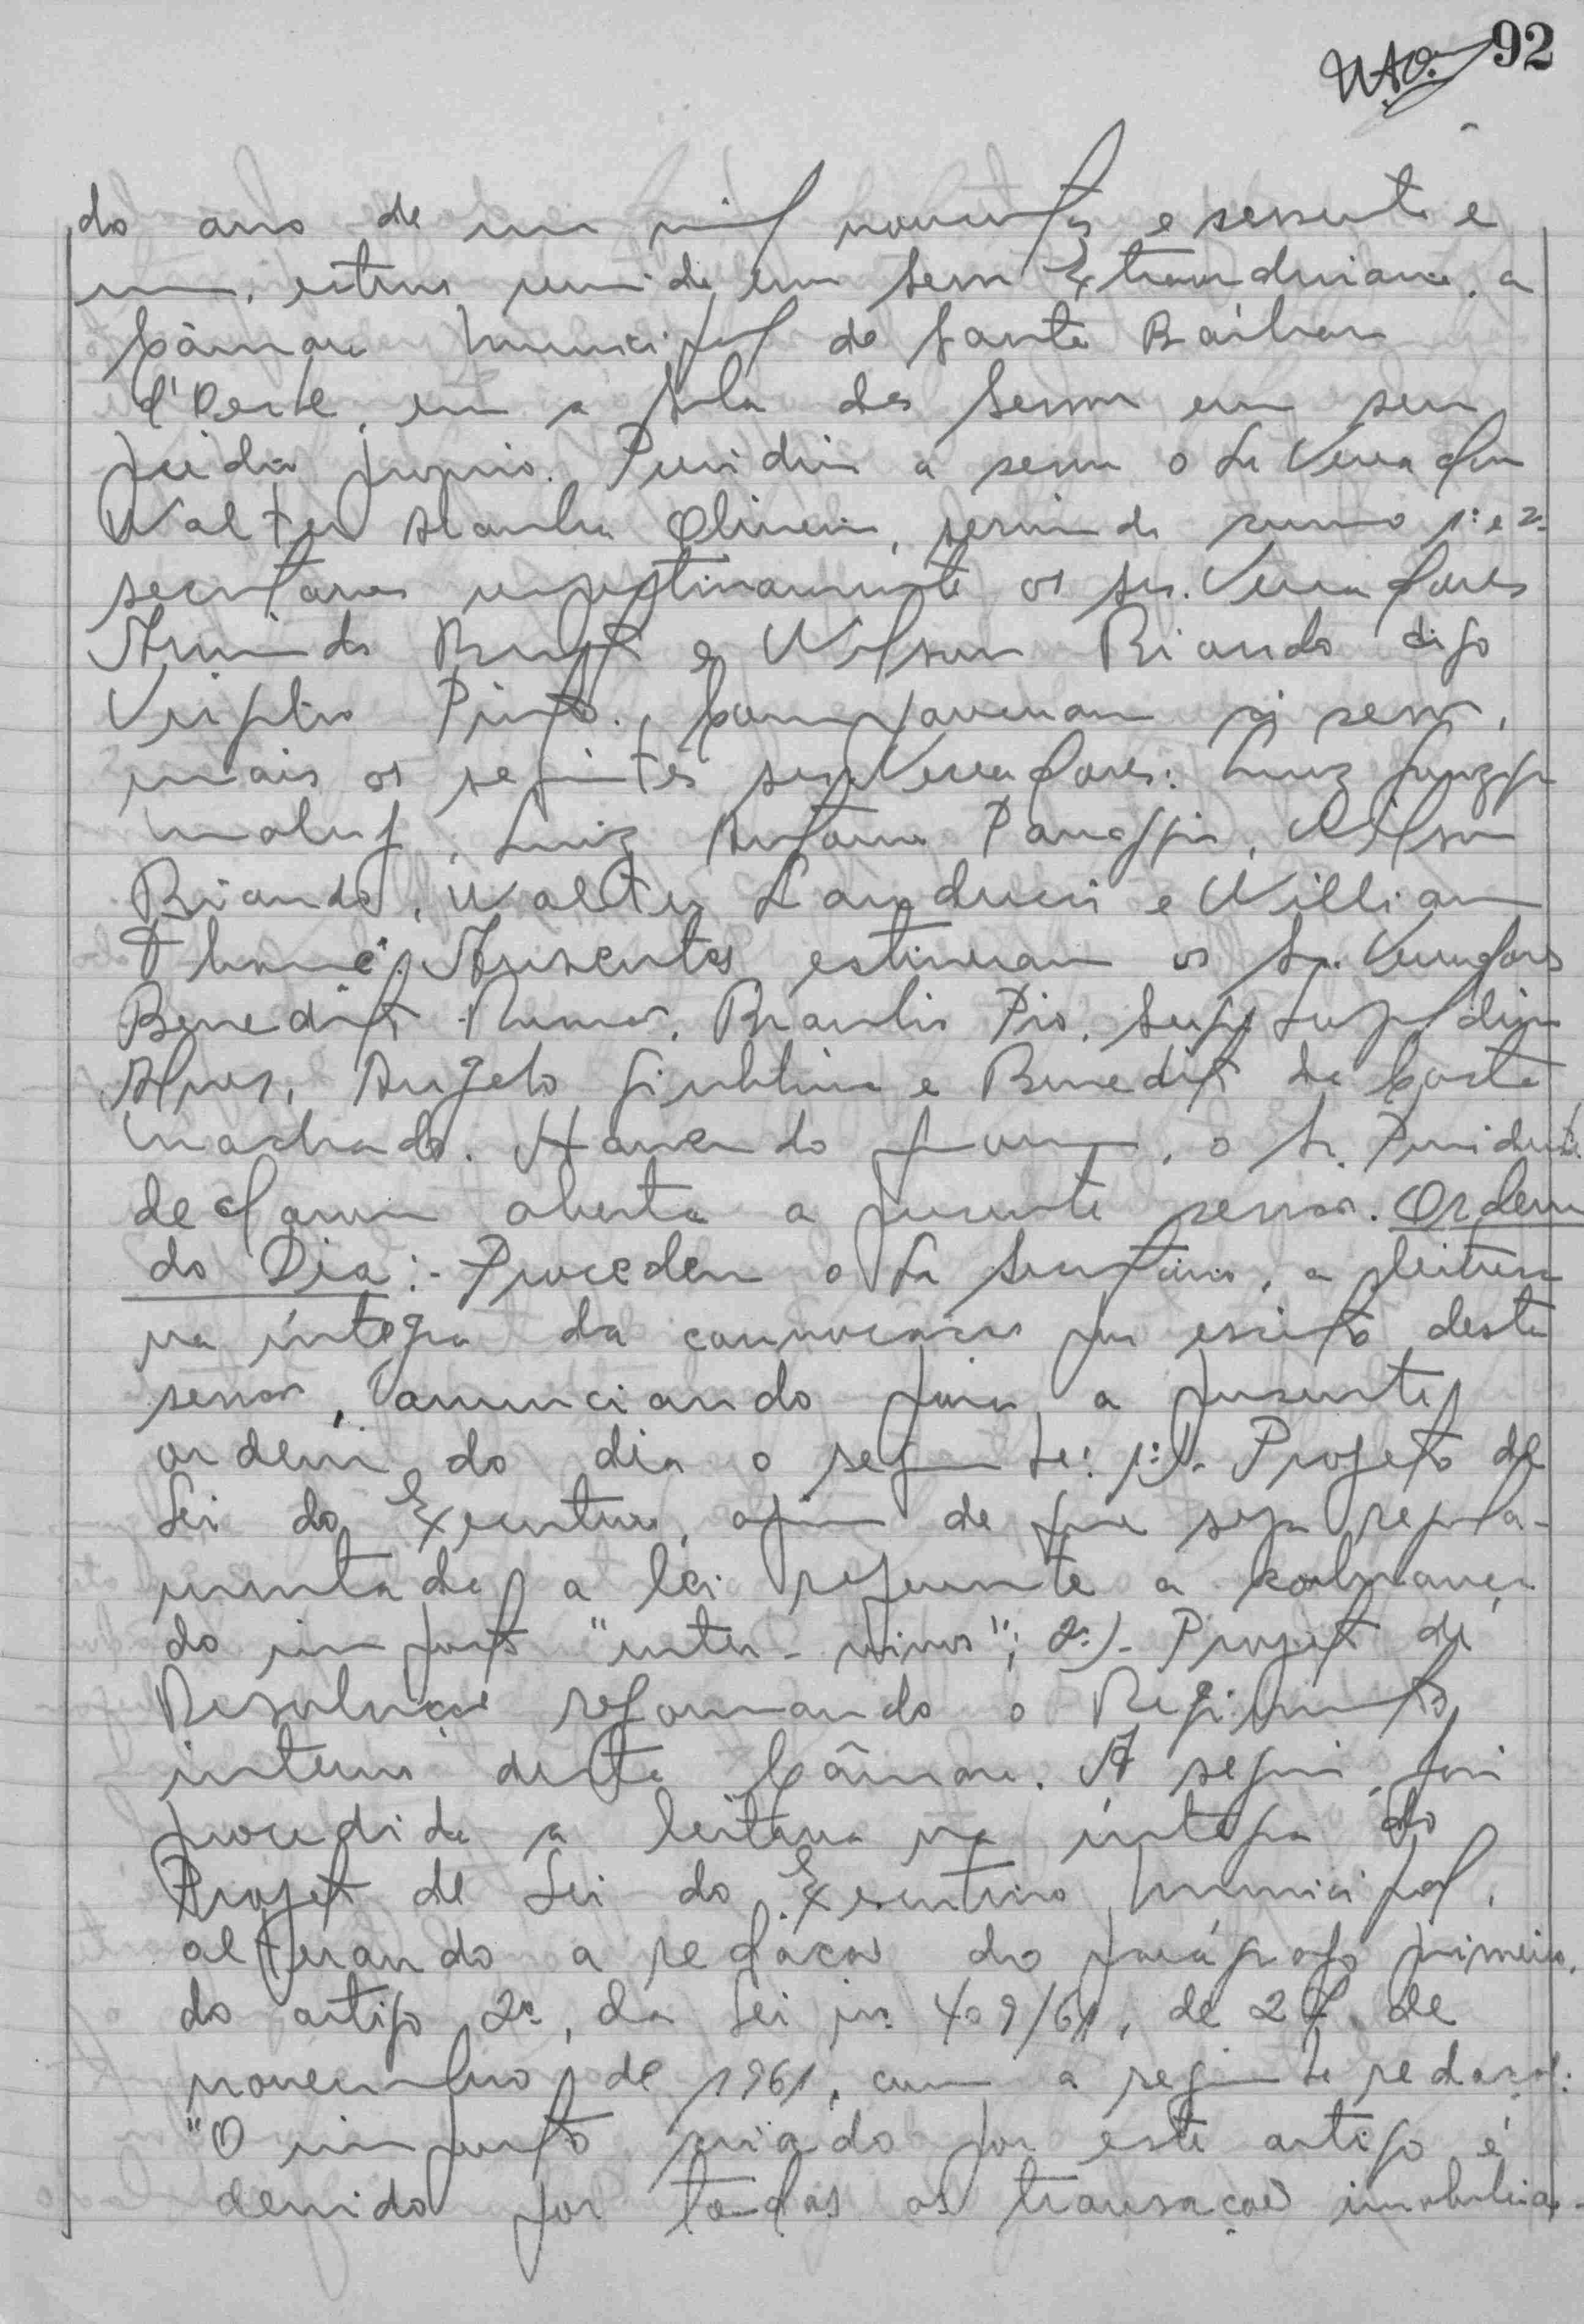 92
do ano de um mil novecentos e sessenta e
um, esteve reunida em sessão Extraordinaria, a
Câmara Municipal de Santa Bárbara
d'Oeste, em a sala das sessões em seu
prédio proprio. Presidiu a sessão o Sr Vereador
Walter Oliveira, servindo como 1º e 2º
secretarios respectivamente os srs. Vereadores
Arminda e Wilson Biando digo
Virgilio Pinto. Compareceram à sessão,
mais os seguintes srs. Vereadores: Luiz
Maluf, Luiz Antonio, Nilson
Biando, Walter Landucci e William
Thomé. Ausentes estiveram os Srs. Vereadores
Benedito Nunes, Braulio Pio,
Alves, Angelo Giubbina e Benedito da Costa
Machado. Havendo numero, o Sr. Presidente
declarou aberta a presente sessão. Ordem
do Dia:- Procedeu o Sr Secretário, a leitura
na íntegra da convocação por escrito desta
sessão, anunciando para a presente
ordem do dia o seguinte: 1º)- Projeto de
Lei do Executivo, afim de que seja regula-
mentada a lei referente a cobrança
do imposto "inter-vivos"; 2º)- Projeto de
Resolução reformando o Regimento
interno desta Câmara. A seguir, foi
procedida a leitura na íntegra do
Projeto de Lei do Executivo Municipal,
alterando a redação do parágrafo primeiro,
do artigo 2º, da Lei nº 409/61, de 27 de
novembro de 1961, com a seguinte redação:
"O imposto criado por este artigo é
devido por todas as transações imobiliá-